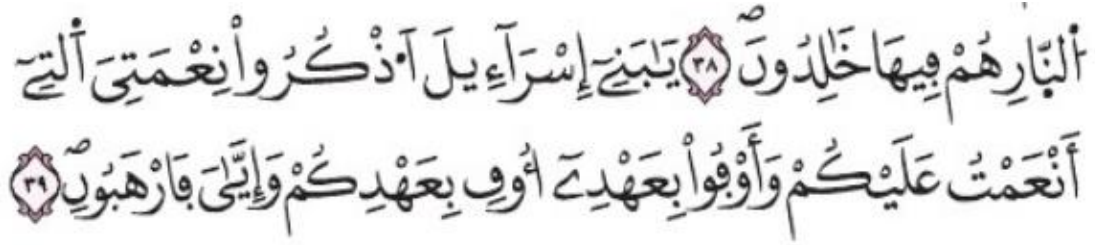 اَ۬لنّ۪ارِ هُمْ فِيهَا خَٰلِدُونَۖ ٣٨ يَٰبَنِےٓ إِسْرَآءِيلَ اَ۟ذْكُرُواْ نِعْمَتِيَ اَ۬لتِےٓ
أَنْعَمْتُ عَلَيْكُمْ وَأَوْفُواْ بِعَهْدِےٓ أُوفِ بِعَهْدِكُمْ وَإِيَّٰيَ فَارْهَبُونِۖ ٣٩